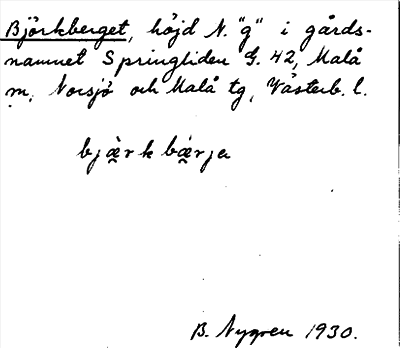 Björkberget, höjd N. "g" i gårds-
namnet Springliden G. 42, Malå
m. Norsjö och Malå tg, Västerb. l.
bjæ̀rkbæ̀rja
B. Nygren 1930.